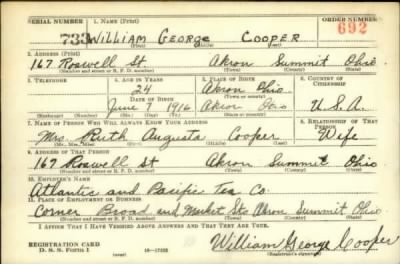 SERIAL NUMBER 1. NAME (Print) ORDER NUMBER
733 WILLIAM GEORGE COOPER 692
(First) (Middle) (Last)
2. ADDRESS (Print)
167 Roswell St Akron Summit Ohio.
(Number and street or R. F. D. number) (Town) (County) (State)
3. TELEPHONE 4. AGE IN YEARS 5. PLACE OF BIRTH 6. COUNTRY OF CITIZENSHIP
24 Akron Ohio
DATE OF BIRTH (Town or county)
June 7 1916 Akron Ohio U.S.A.
(Exchange) (Number) (Mo.) (Day) (Yr.) (State or country)
7. NAME OF PERSON WHO WILL ALWAYS KNOW YOUR ADDRESS 8. RELATIONSHIP OF THAT PERSON
Mrs. Ruth Augusta Cooper Wife
(Mr., Mrs., Miss) (First) (Middle) (Last)
9. ADDRESS OF THAT PERSON
167 Roswell St Akron Summit Ohio
(Number and street or R. F. D. number) (Town) (County) (State)
10. EMPLOYER'S NAME
Atlantic and Pacific Tea Co.
11. PLACE OF EMPLOYMENT OR BUSINESS
Corner Broad and Market Sts Akron Summit Ohio
(Number and street or R. F. D. number) (Town) (County) (State)
I AFFIRM THAT I HAVE VERIFIED ABOVE ANSWERS AND THAT THEY ARE TRUE.
REGISTRATION CARD
D. S. S. Form 1 William George Cooper
(Registrant's signature)